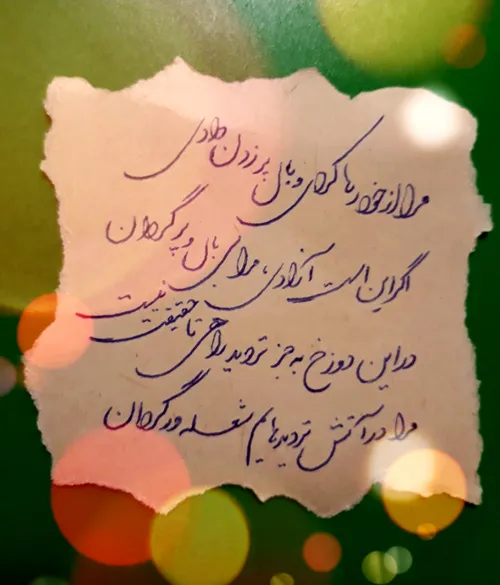 مرا از خود رها کردی و بال پر زدن دادی
اگر این است آزادی، مرا بی بال و پر گردان
در این دوزخ به جز تردید راهی تا حقیقت نیست
مرا در آتش تردیدهایم شعله‌ور گردان